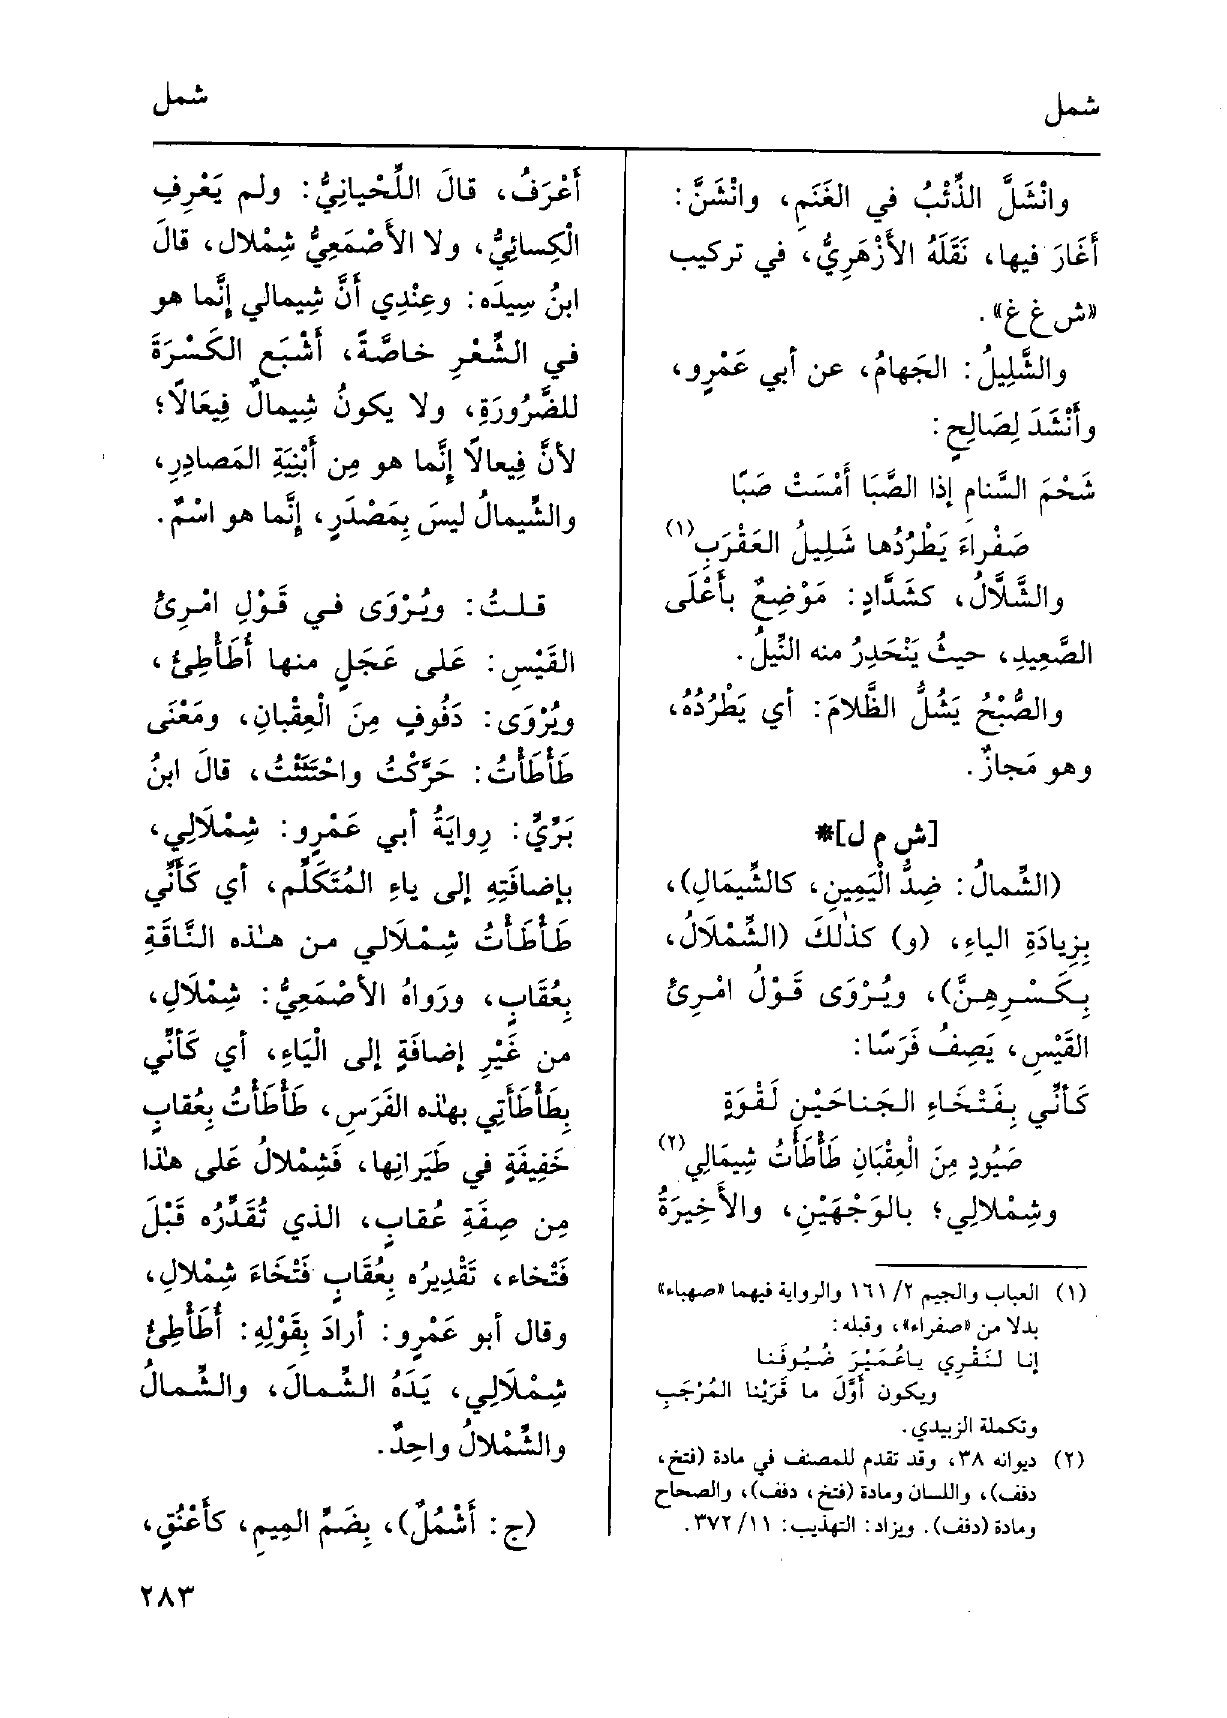 شمل
شمل
وانْشَلَّ الذِّئْبُ في الغَنَمِ، وانْشَنَّ:
أَغَارَ فيها، نَقَلَهُ الأَزْهَرِيُّ، في تركيب
«ش غ غ».
والشَّلِيلُ: الجَهامُ، عن أبي عَمْرٍو،
وأَنْشَدَ لِصَالِحٍ:
شَحْمَ السَّنامِ إذا الصَّبَا أَمْسَتْ صَبًا
صَفْراءَ يَطْرُدُها شَلِيلُ العَقْرَبِ(١)
والشَّلَّالُ، كشَدَّادٍ: مَوْضِعٌ بأَعْلَى
الصَّعِيدِ، حيثُ يَنْحَدِرُ منه النِّيلُ.
والصُّبْحُ يَشُلُّ الظَّلامَ: أي يَطْرُدُهُ،
وهو مَجازٌ.
[ش م ل]*
(الشِّمالُ: ضِدُّ الْيَمِينِ، كالشِّيمَالِ)،
بِزِيادَةِ الياءِ، (و) كذٰلكَ (الشِّمْلَالُ،
بِكَسْرِهِنَّ)، ويُرْوَى قَوْلُ امْرِئ
القَيْسِ، يَصِفُ فَرَسًا:
كَأَنِّي بِفَتْخَاءِ الجَناحَيْنِ لَقْوَةٍ
صَيُودٍ مِنَ الْعِقْبَانِ طَأْطَأْتُ شِيمَالِي(٢)
وشِمْلالِي؛ بالوَجْهَيْنِ، والأَخِيرَةُ
(١) العباب والجيم ٢/ ١٦١ والرواية فيهما «صهباء»
بدلا من «صفراء»، وقبله:
إنا لنَقْرِي ياعُمَيْرَ ضُيُوفَنا
ويكون أَوَّلَ ما قَرَيْنا المُرْجَبِ
وتكملة الزبيدي.
(٢) ديوانه ٣٨، وقد تقدم للمصنف في مادة (فتخ،
دفف)، واللسان ومادة (فتخ، دفف)، والصحاح
ومادة (دفف). ويزاد: التهذيب: ١١/ ٣٧٢.
أَعْرَفُ، قالَ اللِّحْيانِيُّ: ولم يَعْرِفِ
الْكِسائِيُّ، ولا الأَصْمَعِيُّ شِمْلال، قالَ
ابنُ سِيدَه: وعِنْدِي أَنَّ شِيمالي إنَّما هو
في الشِّعْرِ خاصَّةً، أَشْبَع الكَسْرَةَ
للضَّرُورَةِ، ولا يكونُ شِيمالٌ فِيعَالًا؛
لأنَّ فِيعالًا إنَّما هو مِن أَبْنِيَةِ المَصادِرِ،
والشِّيمالُ ليسَ بِمَصْدَرٍ، إنَّما هو اسْمٌ.
قلتُ: ويُرْوَى في قَوْلِ امْرِئ
القَيْسِ: عَلى عَجَلٍ منها أُطَأْطِئ،
ويُرْوَى: دَفُوفٍ مِنَ الْعِقْبانِ، ومَعْنَى
طَأْطَأْتُ: حَرَّكْتُ واحْتَثَثْتُ، قالَ ابنُ
بَرِّيٍّ: رِوايَةُ أبي عَمْرٍو: شِمْلَالِي،
بإضافَتِهِ إلى ياءِ المُتَكَلِّم، أي كَأَنِّي
طَأْطَأْتُ شِمْلَالي من هٰذه النَّاقَةِ
بِعُقَابٍ، ورَواهُ الأَصْمَعِيُّ: شِمْلَالِ،
من غَيْرِ إضافَةٍ إلى الْيَاءِ، أي كَأَنِّي
بِطَأْطَأَتِي بهٰذه الفَرَسِ، طَأْطَأْتُ بِعُقابٍ
خَفِيفَةٍ في طَيَرانِها، فَشِمْلالُ عَلى هٰذا
مِن صِفَةِ عُقابٍ، الذي تُقَدِّرُه قَبْلَ
فَتْخاء، تَقْدِيرُه بِعُقَابٍ فَتْخَاءَ شِمْلَالِ،
وقال أبو عَمْرٍو: أرادَ بِقَوْلِهِ: أُطَأْطِئُ
شِمْلَالِي، يَدَهُ الشِّمالَ، والشِّمالُ
والشِّمْلالُ واحِدٌ.
(ج: أَشْمُلٌ)، بِضَمِّ المِيمِ، كأَعْنُقٍ،
٢٨٣